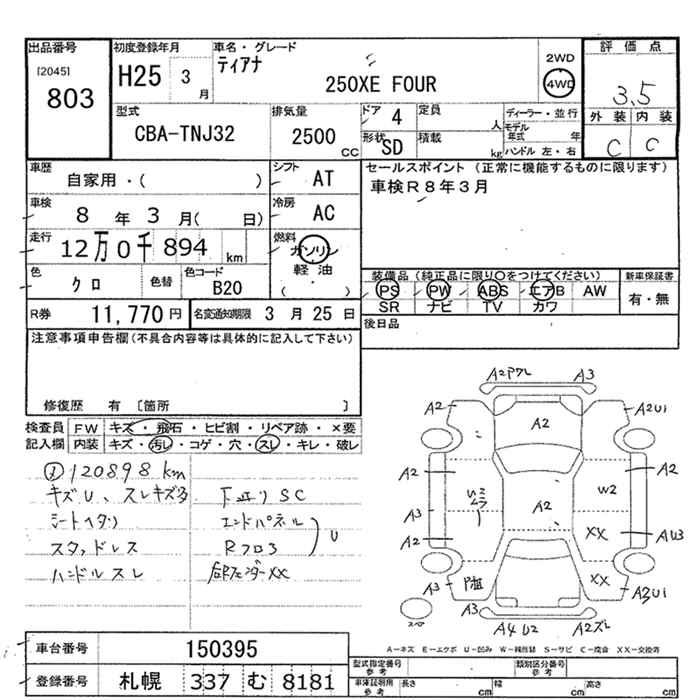 出品番号
[2045]
803
初度登録年月
H25 3月
車名・グレード
ティアナ
250XE FOUR
2WD
4WD
評価点
3.5
外装 内装
C C
型式
CBA-TNJ32
排気量
2500 CC
ドア 4
形状 SD
定員 人
積載 kg
ディーラー・並行
モデル年式 年
ハンドル 左・右
車歴
自家用・( )
シフト AT
セールスポイント (正常に機能するものに限ります)
車検R8年3月
車検
8年 3月( 日)
冷房 AC
走行
12万0千894 km
燃料
ガソリン
軽油
( ・ )
色
クロ
色替
色コード
B20
装備品 (純正品に限り○をつけてください)
PS PW ABS エアB AW
SR ナビ TV カワ
新車保証書
有・無
R券 11,770円
名変通知期限 3月25日
後日品
注意事項申告欄(不具合内容等は具体的に記入して下さい)
修復歴 有 [箇所 ]
検査員記入欄
FW キズ・飛石・ヒビ割・リペア跡・×要
内装 キズ・汚レ・コゲ・穴・スレ・キレ・破レ
120898km
キズU、スレキズ多
シートヘタリ
スタッドレス
ハンドルスレ
下廻りSC
エンドパネル
Rフロア
U
XX
A2 A3
A2 A2 A2U1
A2 A2
W2
A3 A2
A2 XX AU3
A3 XX A3U1
A3
A4 U2 A2
A-キズ E-エクボ U-凹み W-補修跡 S-サビ C-腐食 XX-交換済
車台番号 150395
登録番号 札幌 337 む 8181
型式指定番号 参考
類別区分番号 参考
車庫証明用 参考
長さ cm 幅 cm 高さ cm